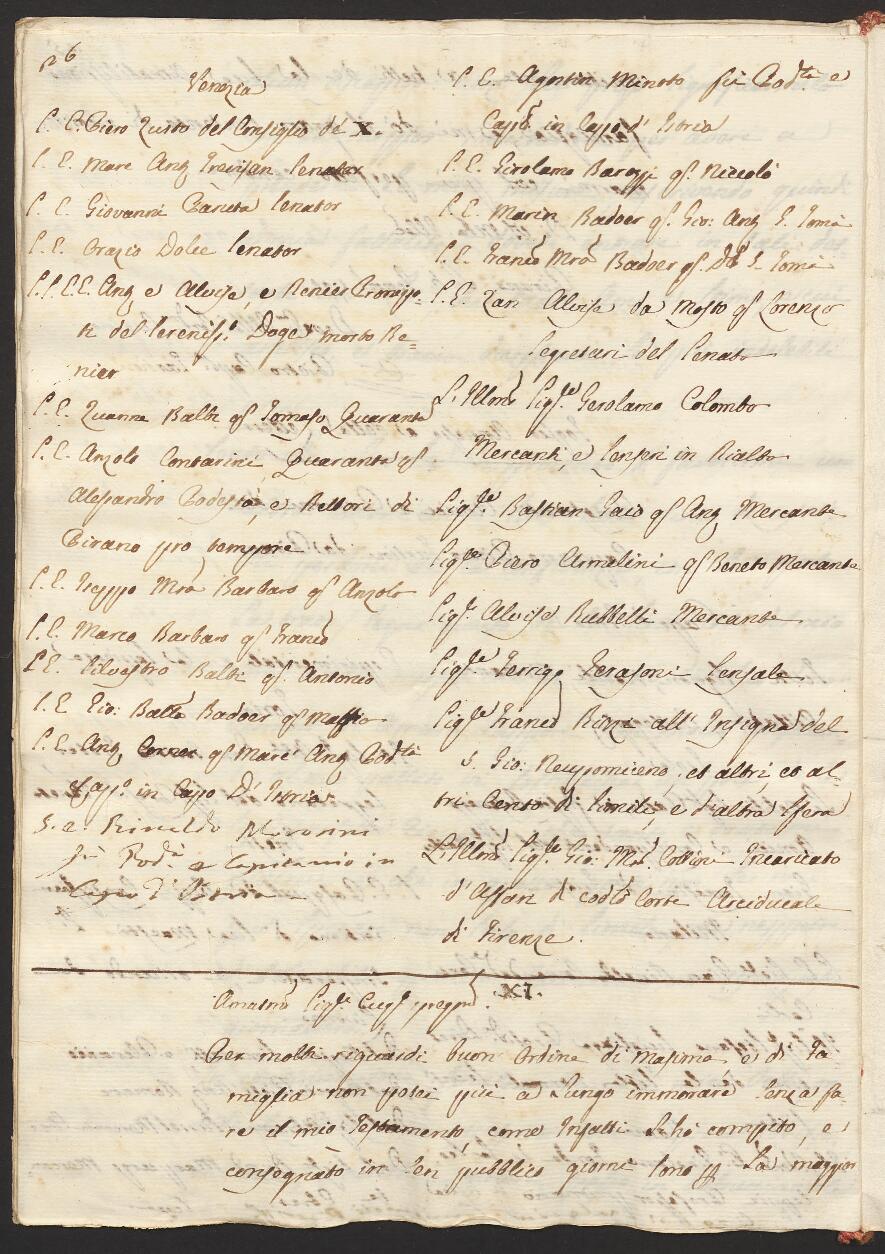 26
Venezia
S. E. Piero Zusto del Consiglio de X.
S. E. Marc Antº Trevisan Senator
S. E. Giovanni Baneta Senator
S. E. Orazio Dolce Senator
S.S. E.E. Antº e Alvise, e Renier Pronipo-
ti del Sereniss.º Doge morto Re-
nier
S. E. Zuanne Balbi qf Tomaso Quaranta
S. E. Anzolo Contarini Quaranta qf
Alessandro Podestà, e Rettori di
Pirano pro tempore
S. E. Barbaro qf Anzolo
S. E. Marco Barbaro qf Francº
S. E. Silvestro Balbi qf. Antonio
S. E. Gio: Batta Badoer qf Maffio
S. E. Antº Corner qf Marc Antº Podtà
Capº in Capo D'Istria
S. E. Rinaldo Morosini
fù Podà e Capitanio in
Capo d'Istria
S. E. Agostin Minoto fù Podtà e
Capº in Capo d'Istria
S. E. Girolamo Barozzi qf. Niccolò
S. E. Marin Badoer qf. Gio: Antº S. Tomà
S. E. Francº Mrà Badoer qf. S. Tomà
S. E. Zan Alvise da Mosto qf Lorenzo
Segretari del Senato
L'Illmo Sigre Gerolamo Colombo
Mercanti, e Senseri in Rialto
Sigre Bastian Gaio qf Antº Mercante
Sigre Piero Armelini qf Beneto Mercante
Sigr Alvise Rubbelli Mercante
Sigre Ferrigo Sensale
Sigre Francº Rizzi all' Insegna del
S. Gio: Nepomiceno, et altri, et al-
tri Cento di simile, e d'altra sfera
L'Illmo Sigre Gio: Mrà Incaricato
d'Affari di codtà Corte Arciducale
di Firenze.
XI.
Amatmo Sigr Cugº pregmo
Per molti riguardi buon ordine di Masima, e di fa
miglia non potei più a lungo immorare senza fa-
re il mio Testamento, come Infatti l'hò compito, e
consegnato in Sen pubblico giorni sono pr La maggior